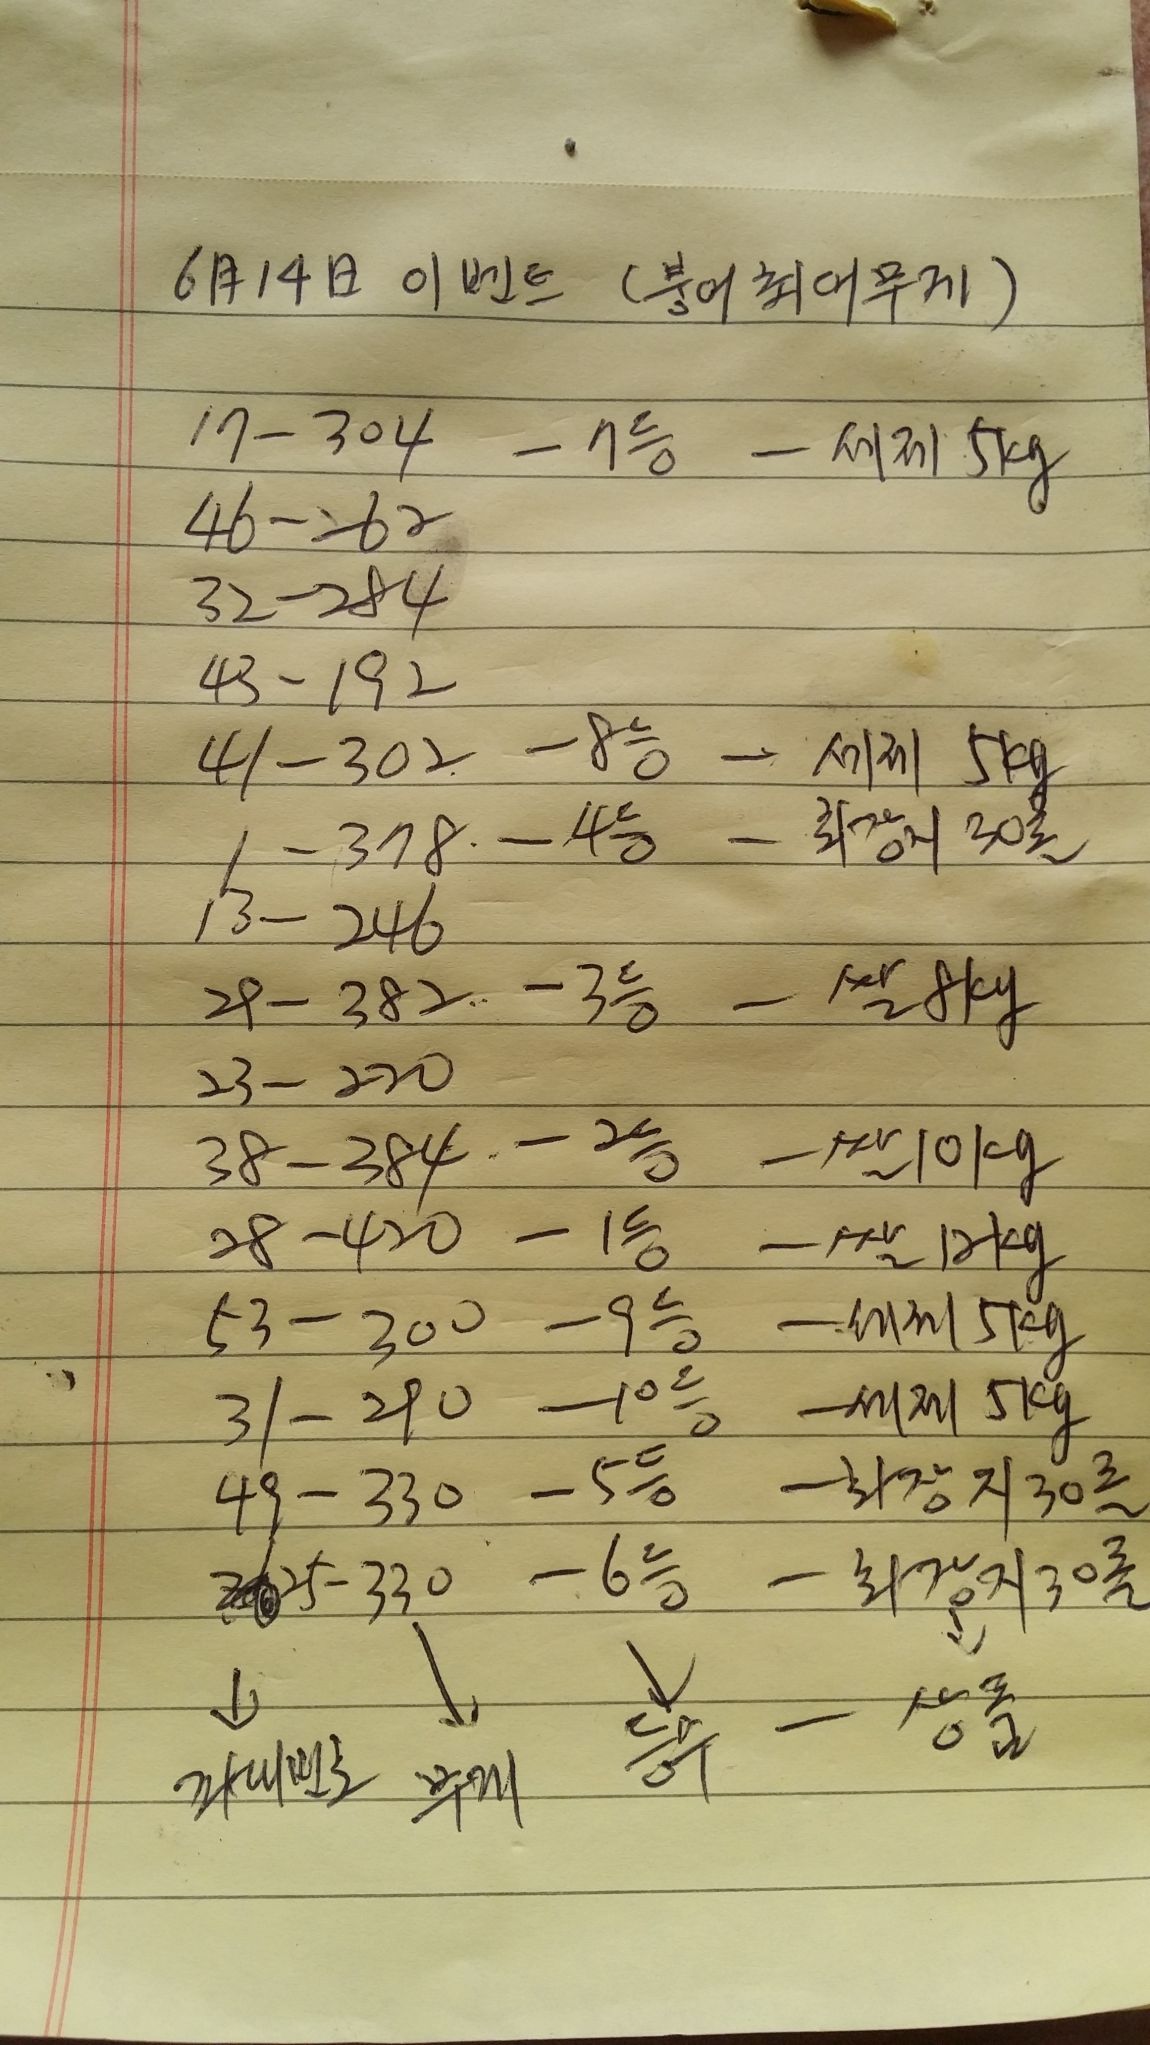 6月14日 이벤트 (붕어최대무게)
17-304 -7등 - 세제 5kg
46-262
32-284
43-192
41-302 -8등 - 세제 5kg
1-378 -4등 - 화장지 30롤
13-246
29-382 -3등 - 쌀 8kg
23-220
38-384 -2등 - 쌀 10kg
28-420 -1등 - 쌀 12kg
53-300 -9등 - 세제 5kg
31-290 -10등 - 세제 5kg
49-330 -5등 - 화장지 30롤
25-330 -6등 - 화장지 30롤
↓ ↓ ↓ ↓
좌대번호 무게 등수 - 상품